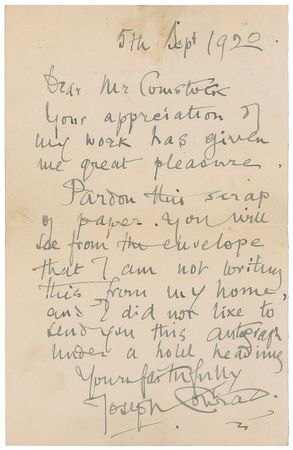 5th Sept 1920.
Dear Mr Comstock
Your appreciation of
my work has given
me great pleasure.
Pardon this scrap
of paper. You will
see from the envelope
that I am not writing
this from my home,
and I did not like to
send you this autograph
under a hotel heading
Yours faithfully
Joseph Conrad